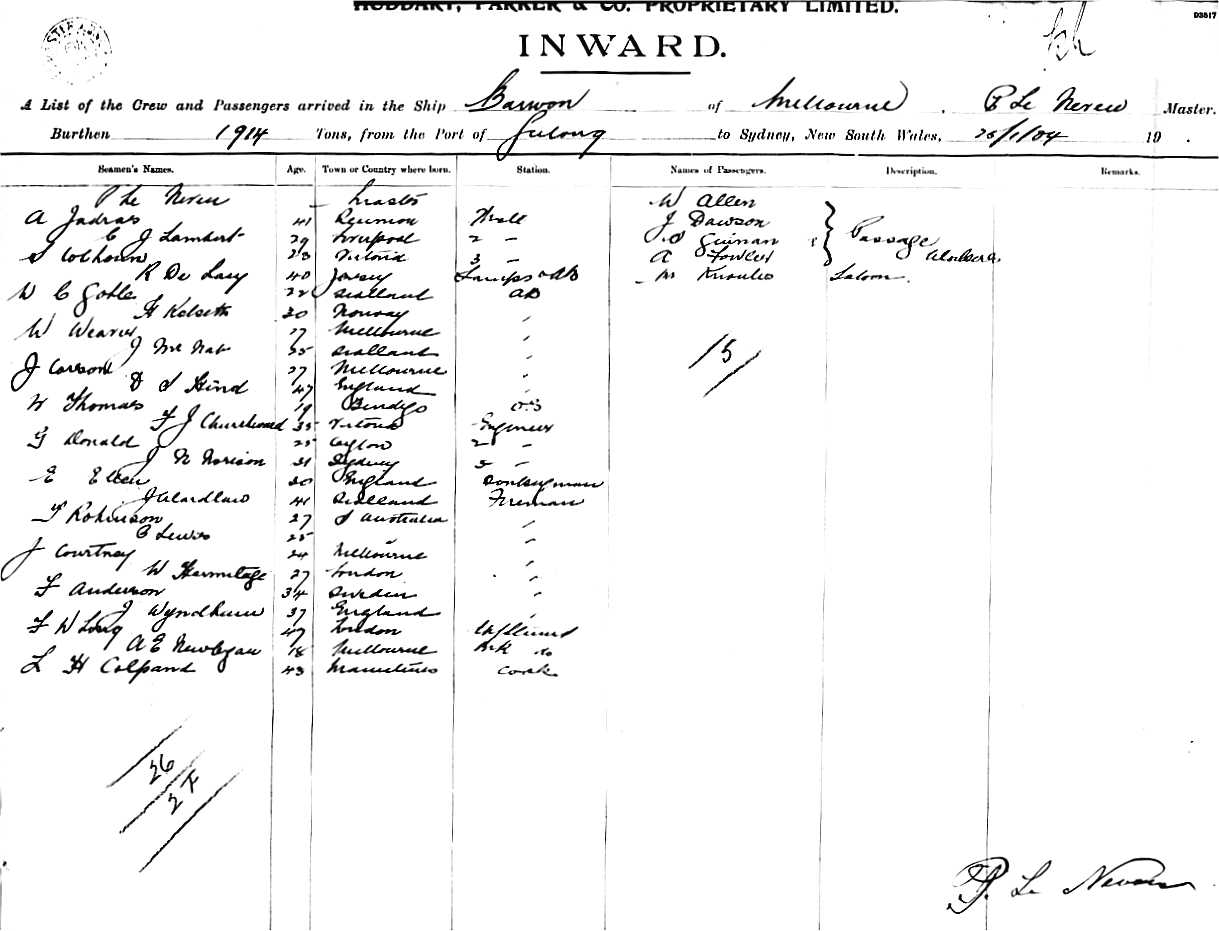 HUDDART, PARKER & CO. PROPRIETARY LIMITED.
D3517
INWARD.
A List of the Crew and Passengers arrived in the Ship Barwon of Melbourne. P Le Neveu Master.
Burthen 1914 Tons, from the Port of Geelong to Sydney, New South Wales, 25/1/04 19 .
Seamen's Names. Age. Town or Country where born. Station. Names of Passengers. Description. Remarks.
P Le Neveu Master W Allen
A Jadras 41 Reunion Mate J Dawson
C J Lambert 29 Liverpool 2 - Guinan Passage
S Colhoun 23 Victoria 3 - A Fowler
R De Lacy 40 Jersey Lamps & AB Mr Knowles Saloon.
W C Goble 22 Scotland AB
H Kolseth 20 Norway "
W Weaver 27 Melbourne "
J Mc Nab 35 Scotland "
J Carson 27 Melbourne "
D S Hind 47 England "
W Thomas 19 Bendigo OS
15
F J Churchward 35 Victoria Engineer
G Donald 25 Ceylon 2 -
J N Norison 21 Sydney 3 -
E Ellen 20 England Donkeyman
J Wardlaw 41 Scotland Fireman
T Robinson 27 S Australia "
C Lewis 25 " "
J Courtney 24 Melbourne "
W Hermitage 27 London "
F Anderson 34 Sweden "
J Wyndham 37 England "
F W Long 47 London
A E Newbegan 18 Melbourne do
L H Colpand 43 Mauritius Cook
26
27
P. Le Neveu